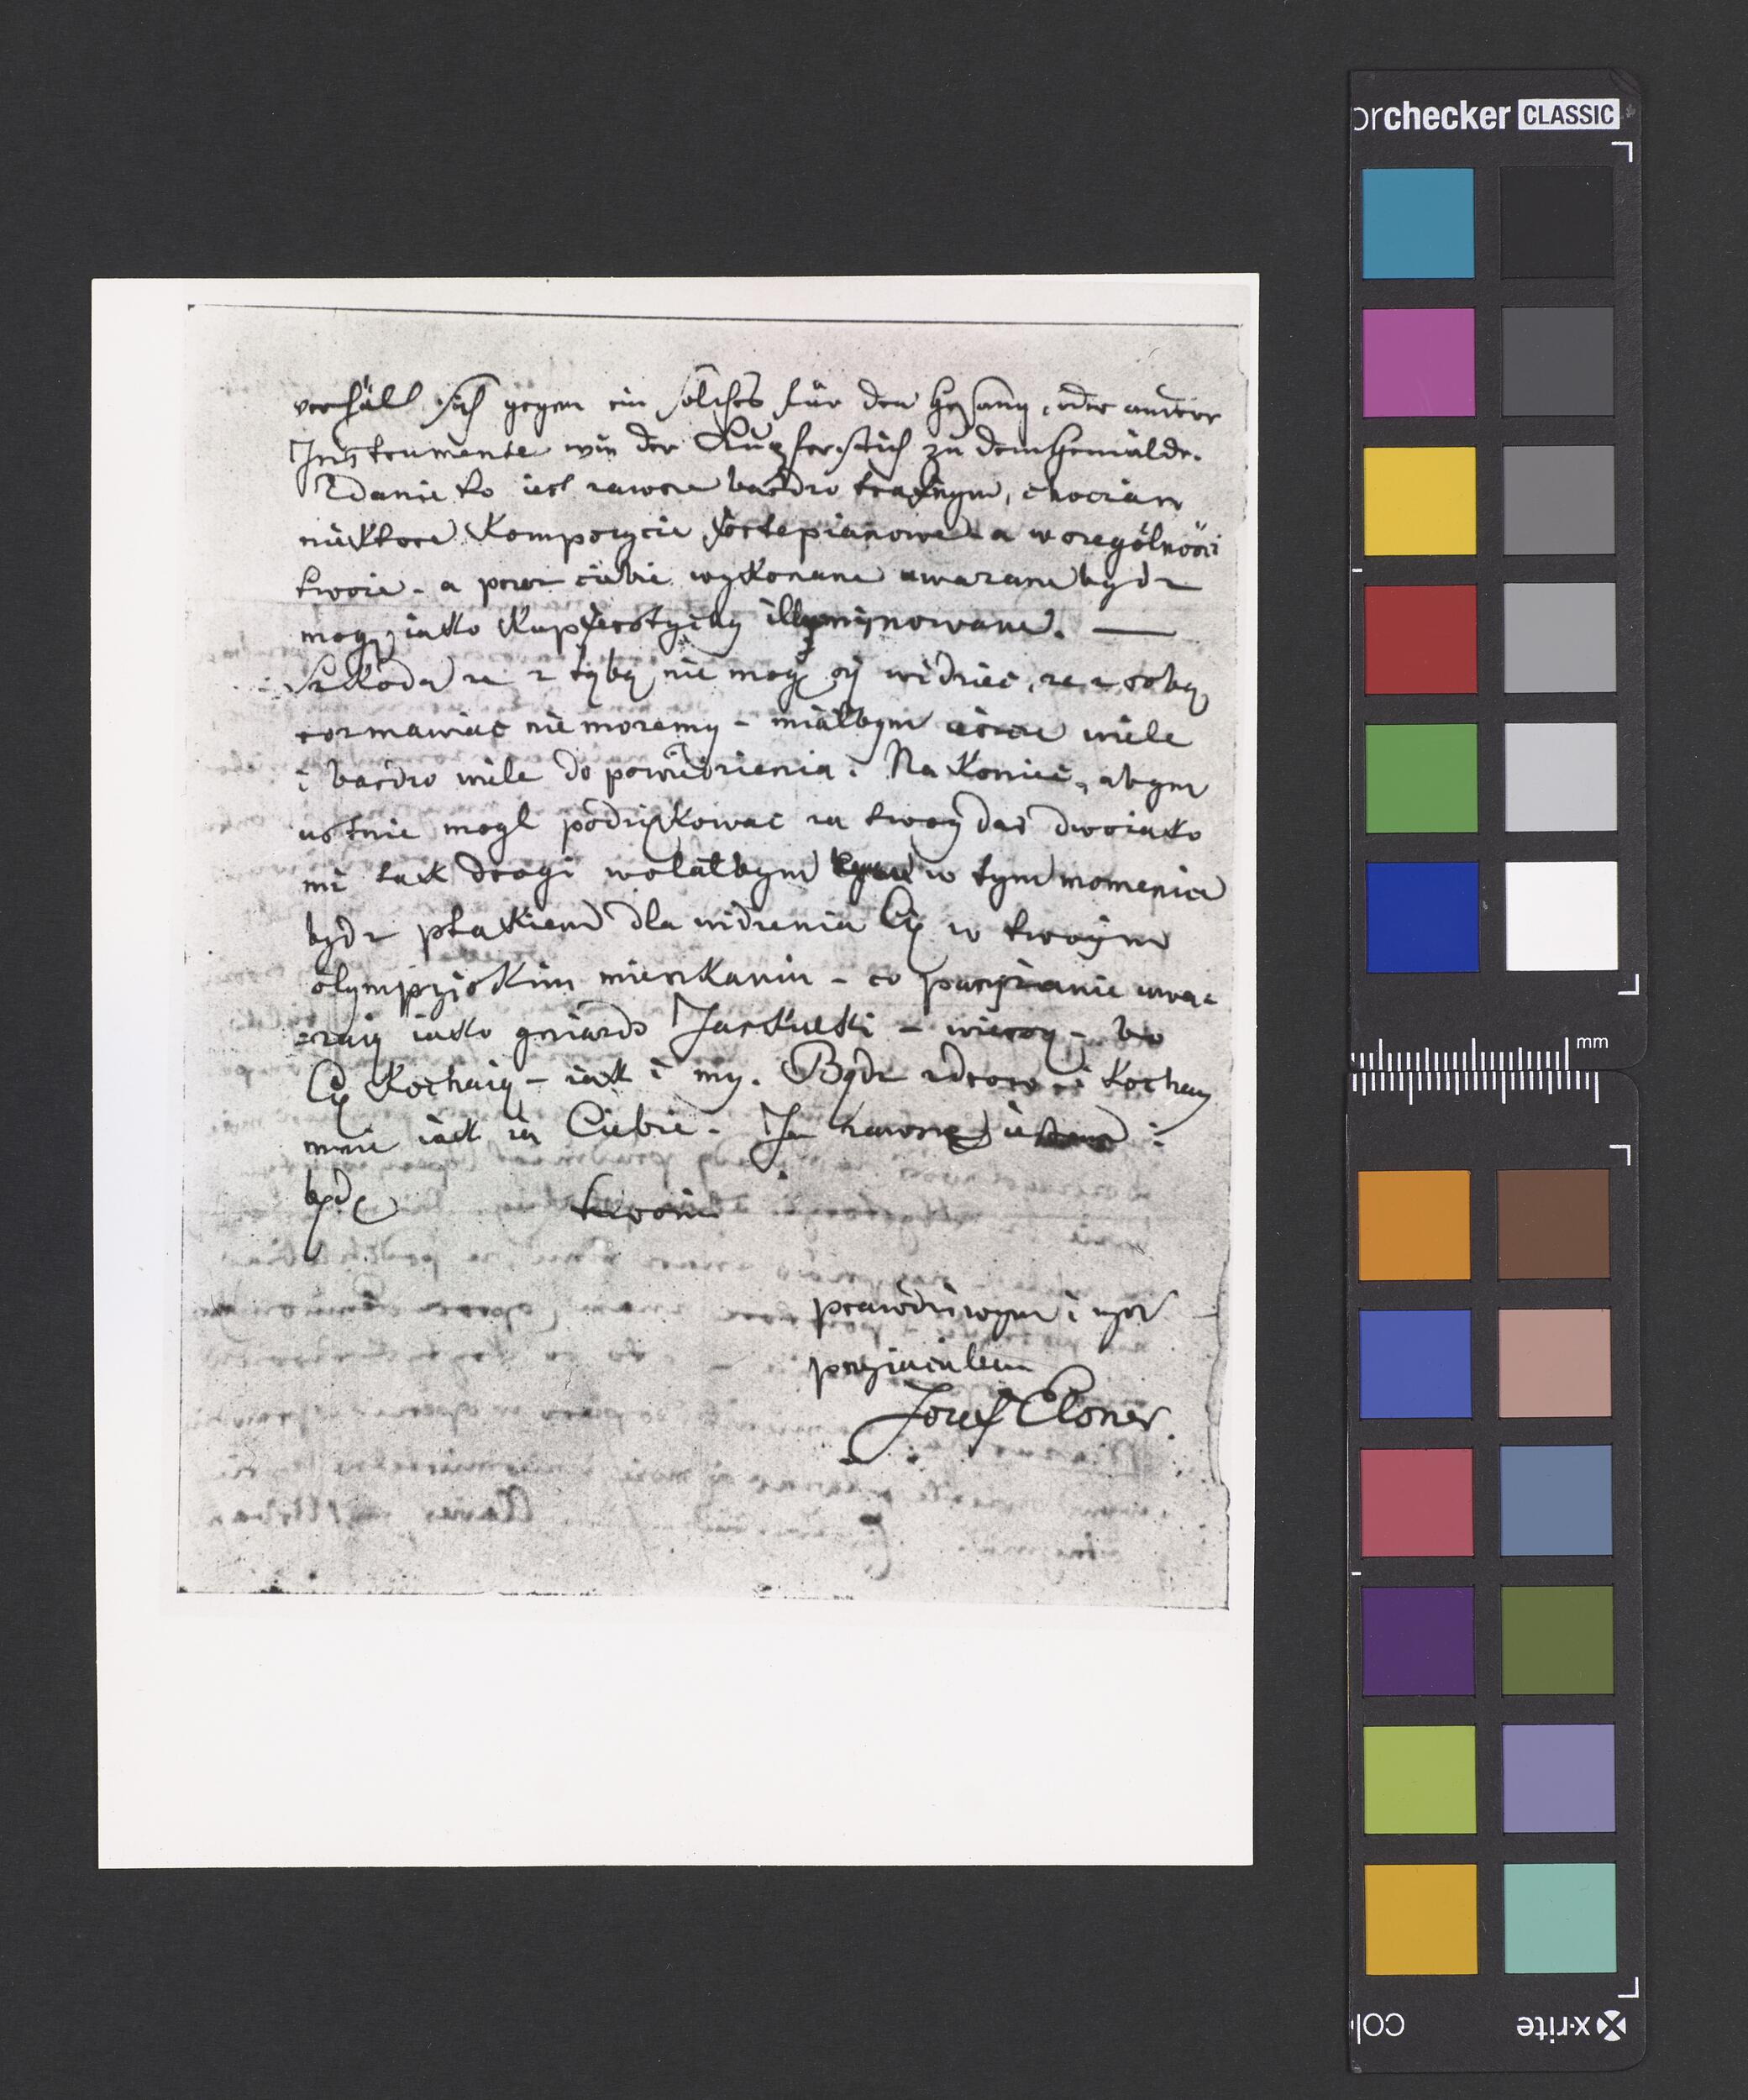 orchecker CLASSIC
verhält sich gegen ein solches für den Gesang, oder andere
Instrumente wie der Kupferstich zu dem Gemälde.
Zdanie to iest zawsze bardzo trafnym, chociarz
niektore Kompozycie fortepianowe - a w szególności
twoie - a przez ciebie wykonane uwazane bydz
mogą iako Kupfersztychy illyminowane. —
Szkoda ze z tybą nie mogę się widziec, ze z sobą
rozmawiac nie mozemy - miałbym ieszcze wiele
i bardzo wiele do powiedzienia. Na Koniec, abym
ustnie mogl podziękowac za twoy dar dwoiako
mi tak drogi wolałbym w tym momencie
bydz ptakiem dla widzenia Cię w twoym
olympyiskim mieszkaniu - co paryzanie uwa=
=zaią iako gniazdo Jaskulki - wierzą - bo
Cię Kochaią - iak i my. Bądz zdrow i Kochay
mnie iak ia Ciebie - Ja zawsze i
będę twoim
prawdziwym i
przyiacielem
Jozef Elsner.
mm
x-rite
col